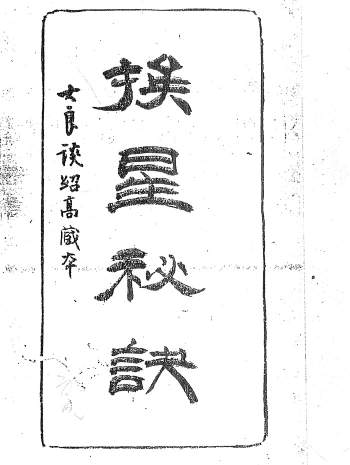 挨星秘訣
士良談紹高藏本